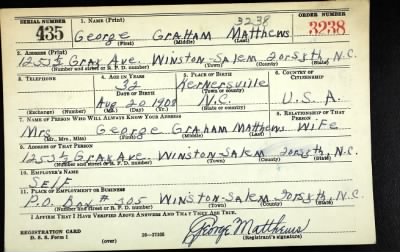 SERIAL NUMBER 1. NAME (Print) 3238 ORDER NUMBER
435 George Graham Matthews 3238
(First) (Middle) (Last)
2. ADDRESS (Print)
1253½ Gray Ave. Winston-Salem Forsyth N.C.
(Number and street or R. F. D. number) (Town) (County) (State)
3. TELEPHONE 4. AGE IN YEARS 5. PLACE OF BIRTH 6. COUNTRY OF CITIZENSHIP
32 Kernersville
DATE OF BIRTH (Town or county)
Aug 20 1908 N.C. U.S.A.
(Exchange) (Number) (Mo.) (Day) (Yr.) (State or country)
7. NAME OF PERSON WHO WILL ALWAYS KNOW YOUR ADDRESS 8. RELATIONSHIP OF THAT PERSON
Mrs George Graham Matthews Wife
(Mr., Mrs., Miss) (First) (Middle) (Last)
9. ADDRESS OF THAT PERSON
1253½ Gray Ave. Winston-Salem Forsyth, N.C.
(Number and street or R. F. D. number) (Town) (County) (State)
10. EMPLOYER'S NAME
Self
11. PLACE OF EMPLOYMENT OR BUSINESS
P.O. Box # 305 Winston-Salem Forsyth N.C.
(Number and street or R. F. D. number) (Town) (County) (State)
I AFFIRM THAT I HAVE VERIFIED ABOVE ANSWERS AND THAT THEY ARE TRUE.
REGISTRATION CARD
D. S. S. Form 1 (over) 16-17105 George Matthews
(Registrant's signature)